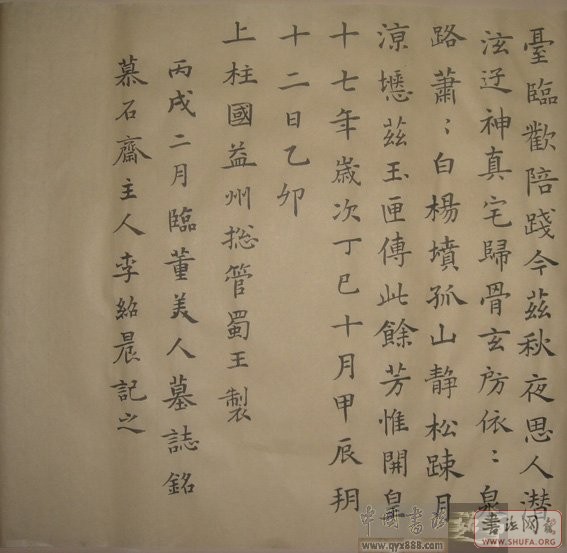 臺臨歡陪踐今茲秋夜思人潛
泫迂神真宅歸骨玄房依：泉
路蕭：白楊墳孤山靜松踈月
凉壥茲玉匣傳此餘芳惟開皇
十七年歲次丁巳十月甲辰玥
十二日乙卯
上柱國益州捴管蜀王製
丙戌二月臨董美人墓誌銘
慕石齋主人李紹晨記之
中国書法
www.qyx888.com
書法网
www.SHUFA.ORG